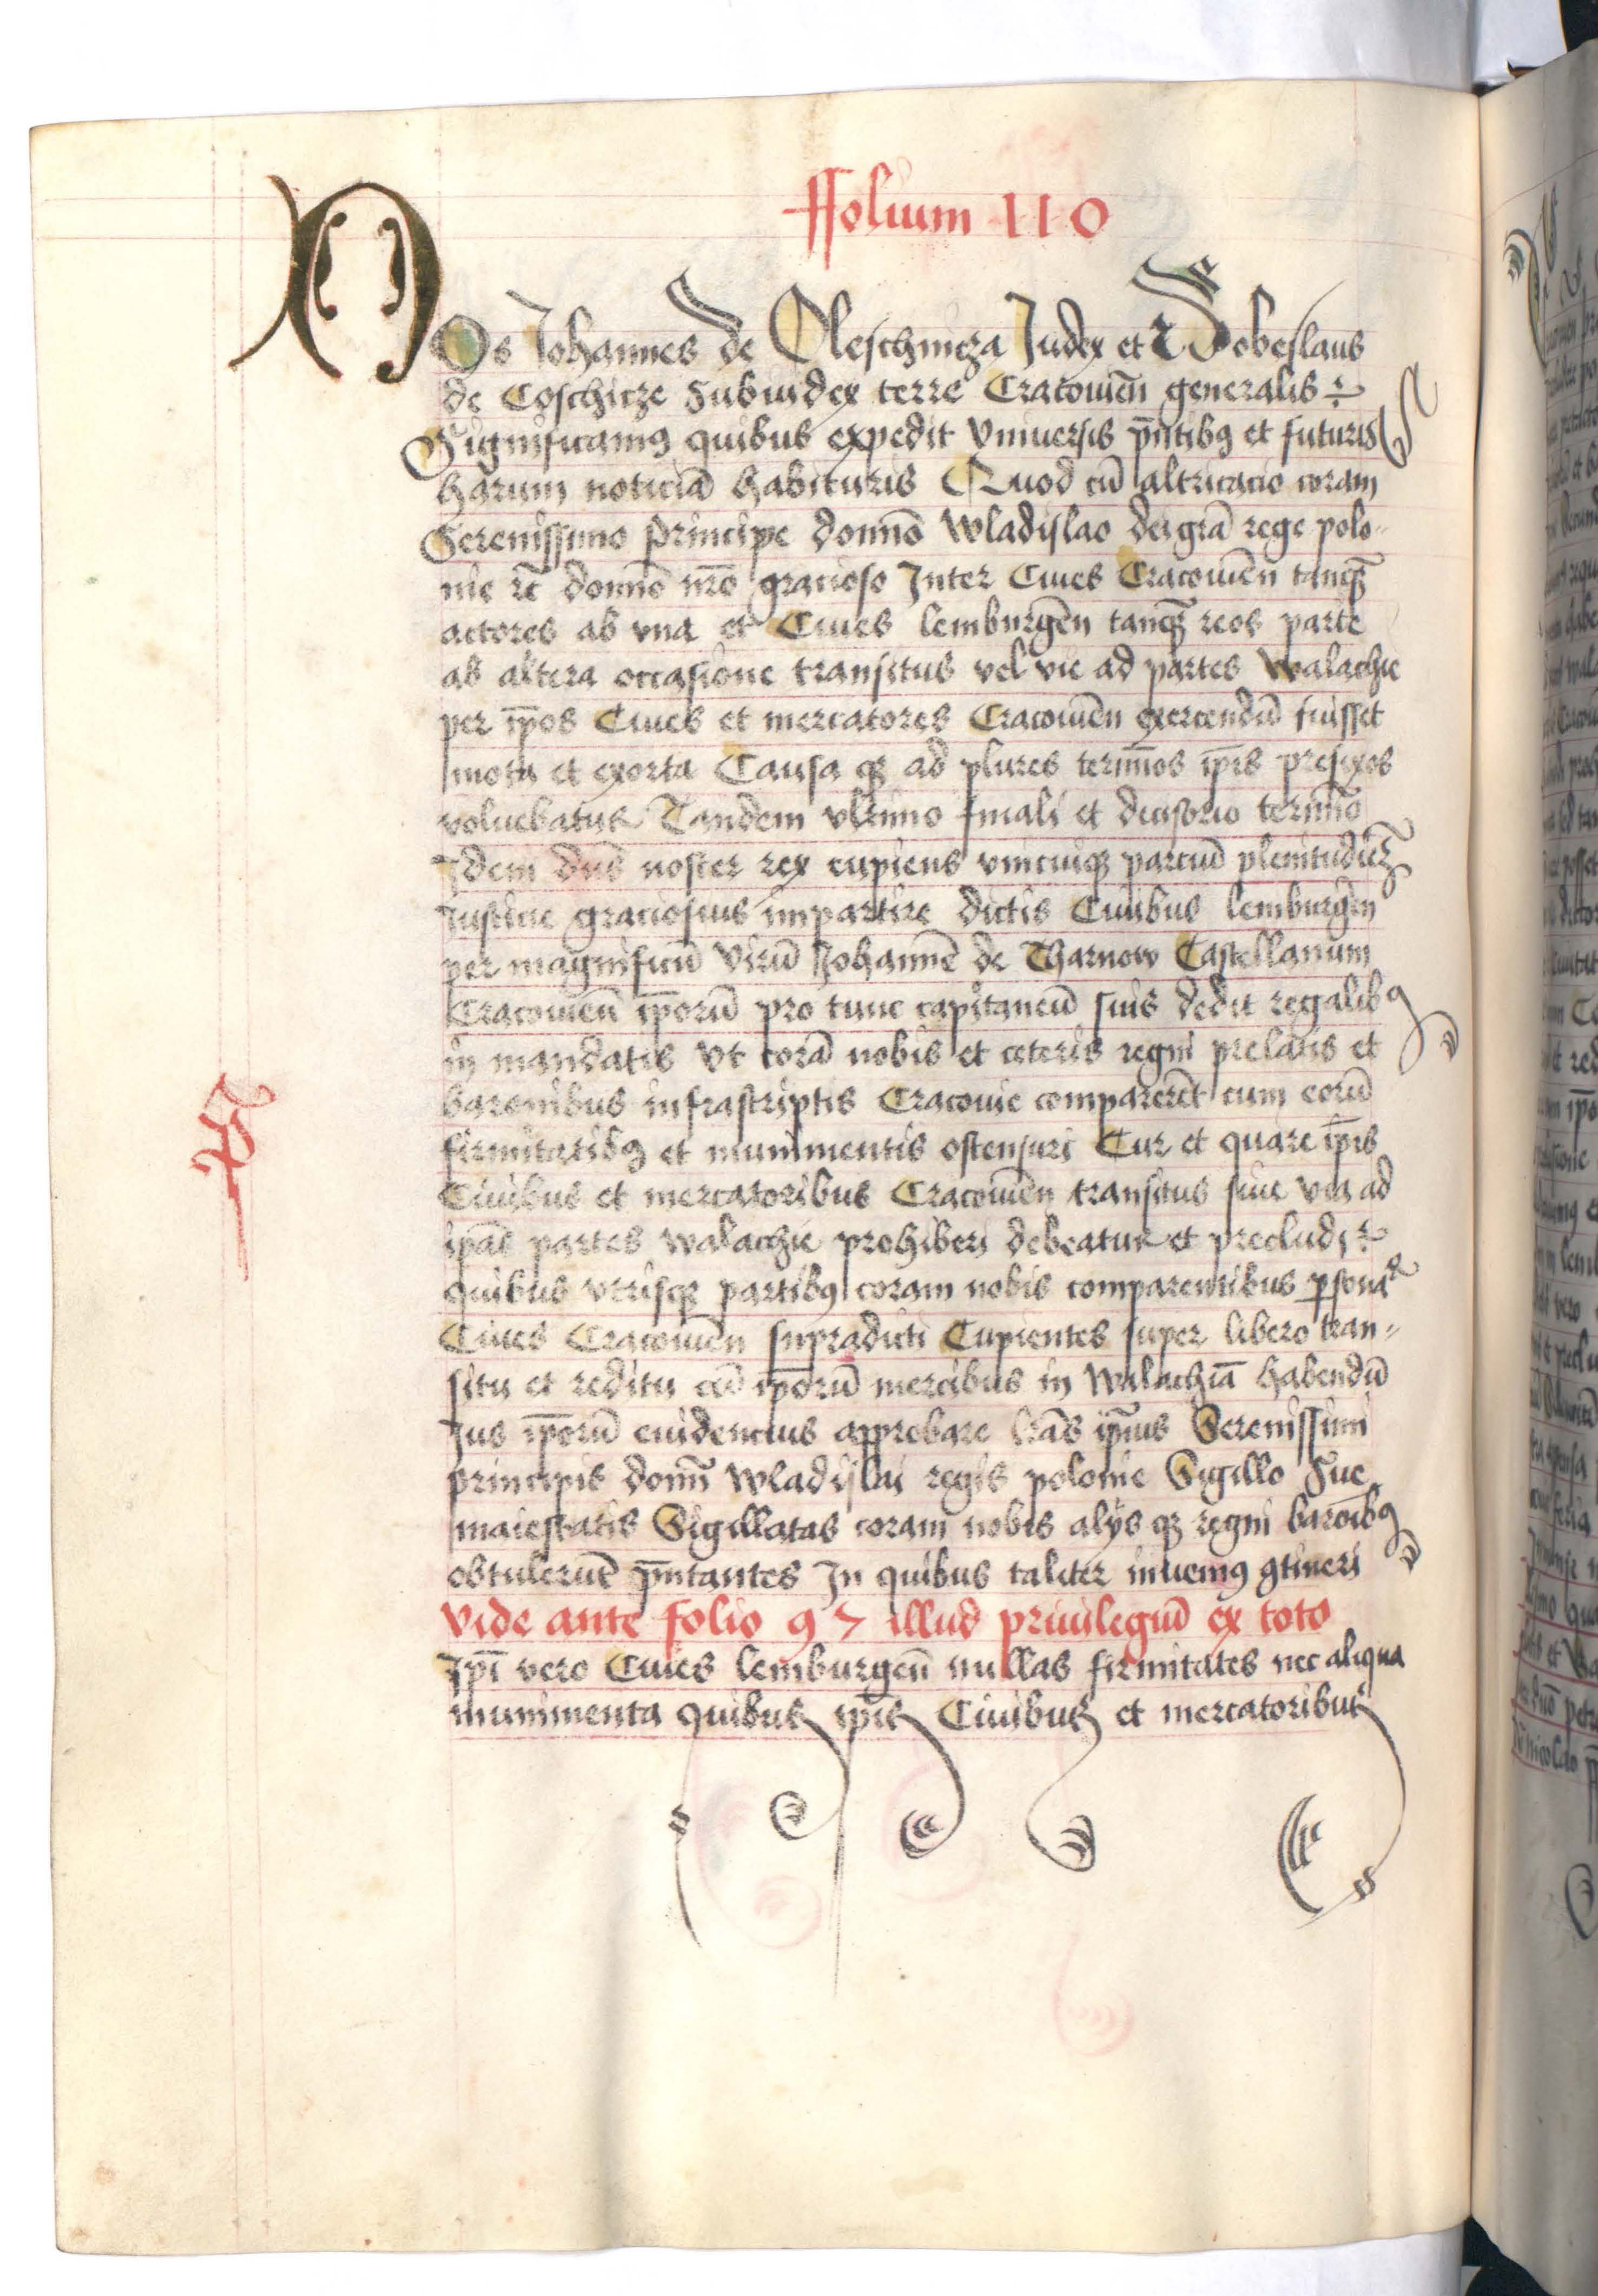 ffolium 110
NOs Johannes de Oleschnicza Judex et Dobeslaus
de Coschicze Subiudex terre Cracouien̄ generalis
Significamꝰ quibus expedit Vniuersis p̄ntibꝰ et futuris
harum noticiā habituris Quod cū altricacio coram
Serenissimo principe domnō Wladislao dei gr̄a rege polo-
nie ꝛc̄ domnō nrō gracioso Inter Ciues Cracouien̄ tanqꝫ
actores ab vna et Ciues lemburgen̄ tanqꝫ reos parte
ab altera occasione transitus vel vie ad partes Walachie
per ip̄os Ciues et mercatores Cracouien̄ exercendū fuisset
mota et exorta Causa qꝫ ad plures termīos ip̄is prefixos
voluebatur Tandem vltimo finali et decisorio termīo
Idem dn̄s noster rex cupiens vnicuiqꝫ parciū plenitudinē
Iusticie graciosius impartire dictis Ciuibus lemburgen̄
per magnificū virū Johannē de Tharnow Castellanum
Cracouien̄ ip̄orū pro tunc capitaneū suis dedit regalibꝰ
in mandatis vt corā nobis et ceteris regni prelatis et
baronibus infrascriptis Cracouie comparerēt cum eorū
firmitatibꝰ et munimentis ostensuri Cur et quare ip̄is
Ciuibus et mercatoribus Cracouien̄ transitus siue via ad
ip̄as partes walachie prohiberi debeatur et precludi
quibus vtrisqꝫ partibꝰ coram nobis comparentibus ꝑsonalr̄
Ciues Cracouien̄ supradicti Cupientes super libero tran-
situ et reditu cū ip̄orū mercibus in Walachiā habendū
Jus ip̄orū euidencius approbare lr̄as ip̄ius Serenissimi
principis domnī Wladislai regis polonie Sigillo Sue
maiestatis Sigillatas coram nobis alijs qꝫ regni baronibꝰ
obtulerūt p̄ntantes In quibus taliter inuenimꝰ ꝯtineri
Vide ante folio 97 illud priuilegiū ex toto
Ip̄i vero Ciues lemburgen̄ nullas firmitates nec aliqua
munimenta quibus ip̄is Ciuibus et mercatoribus